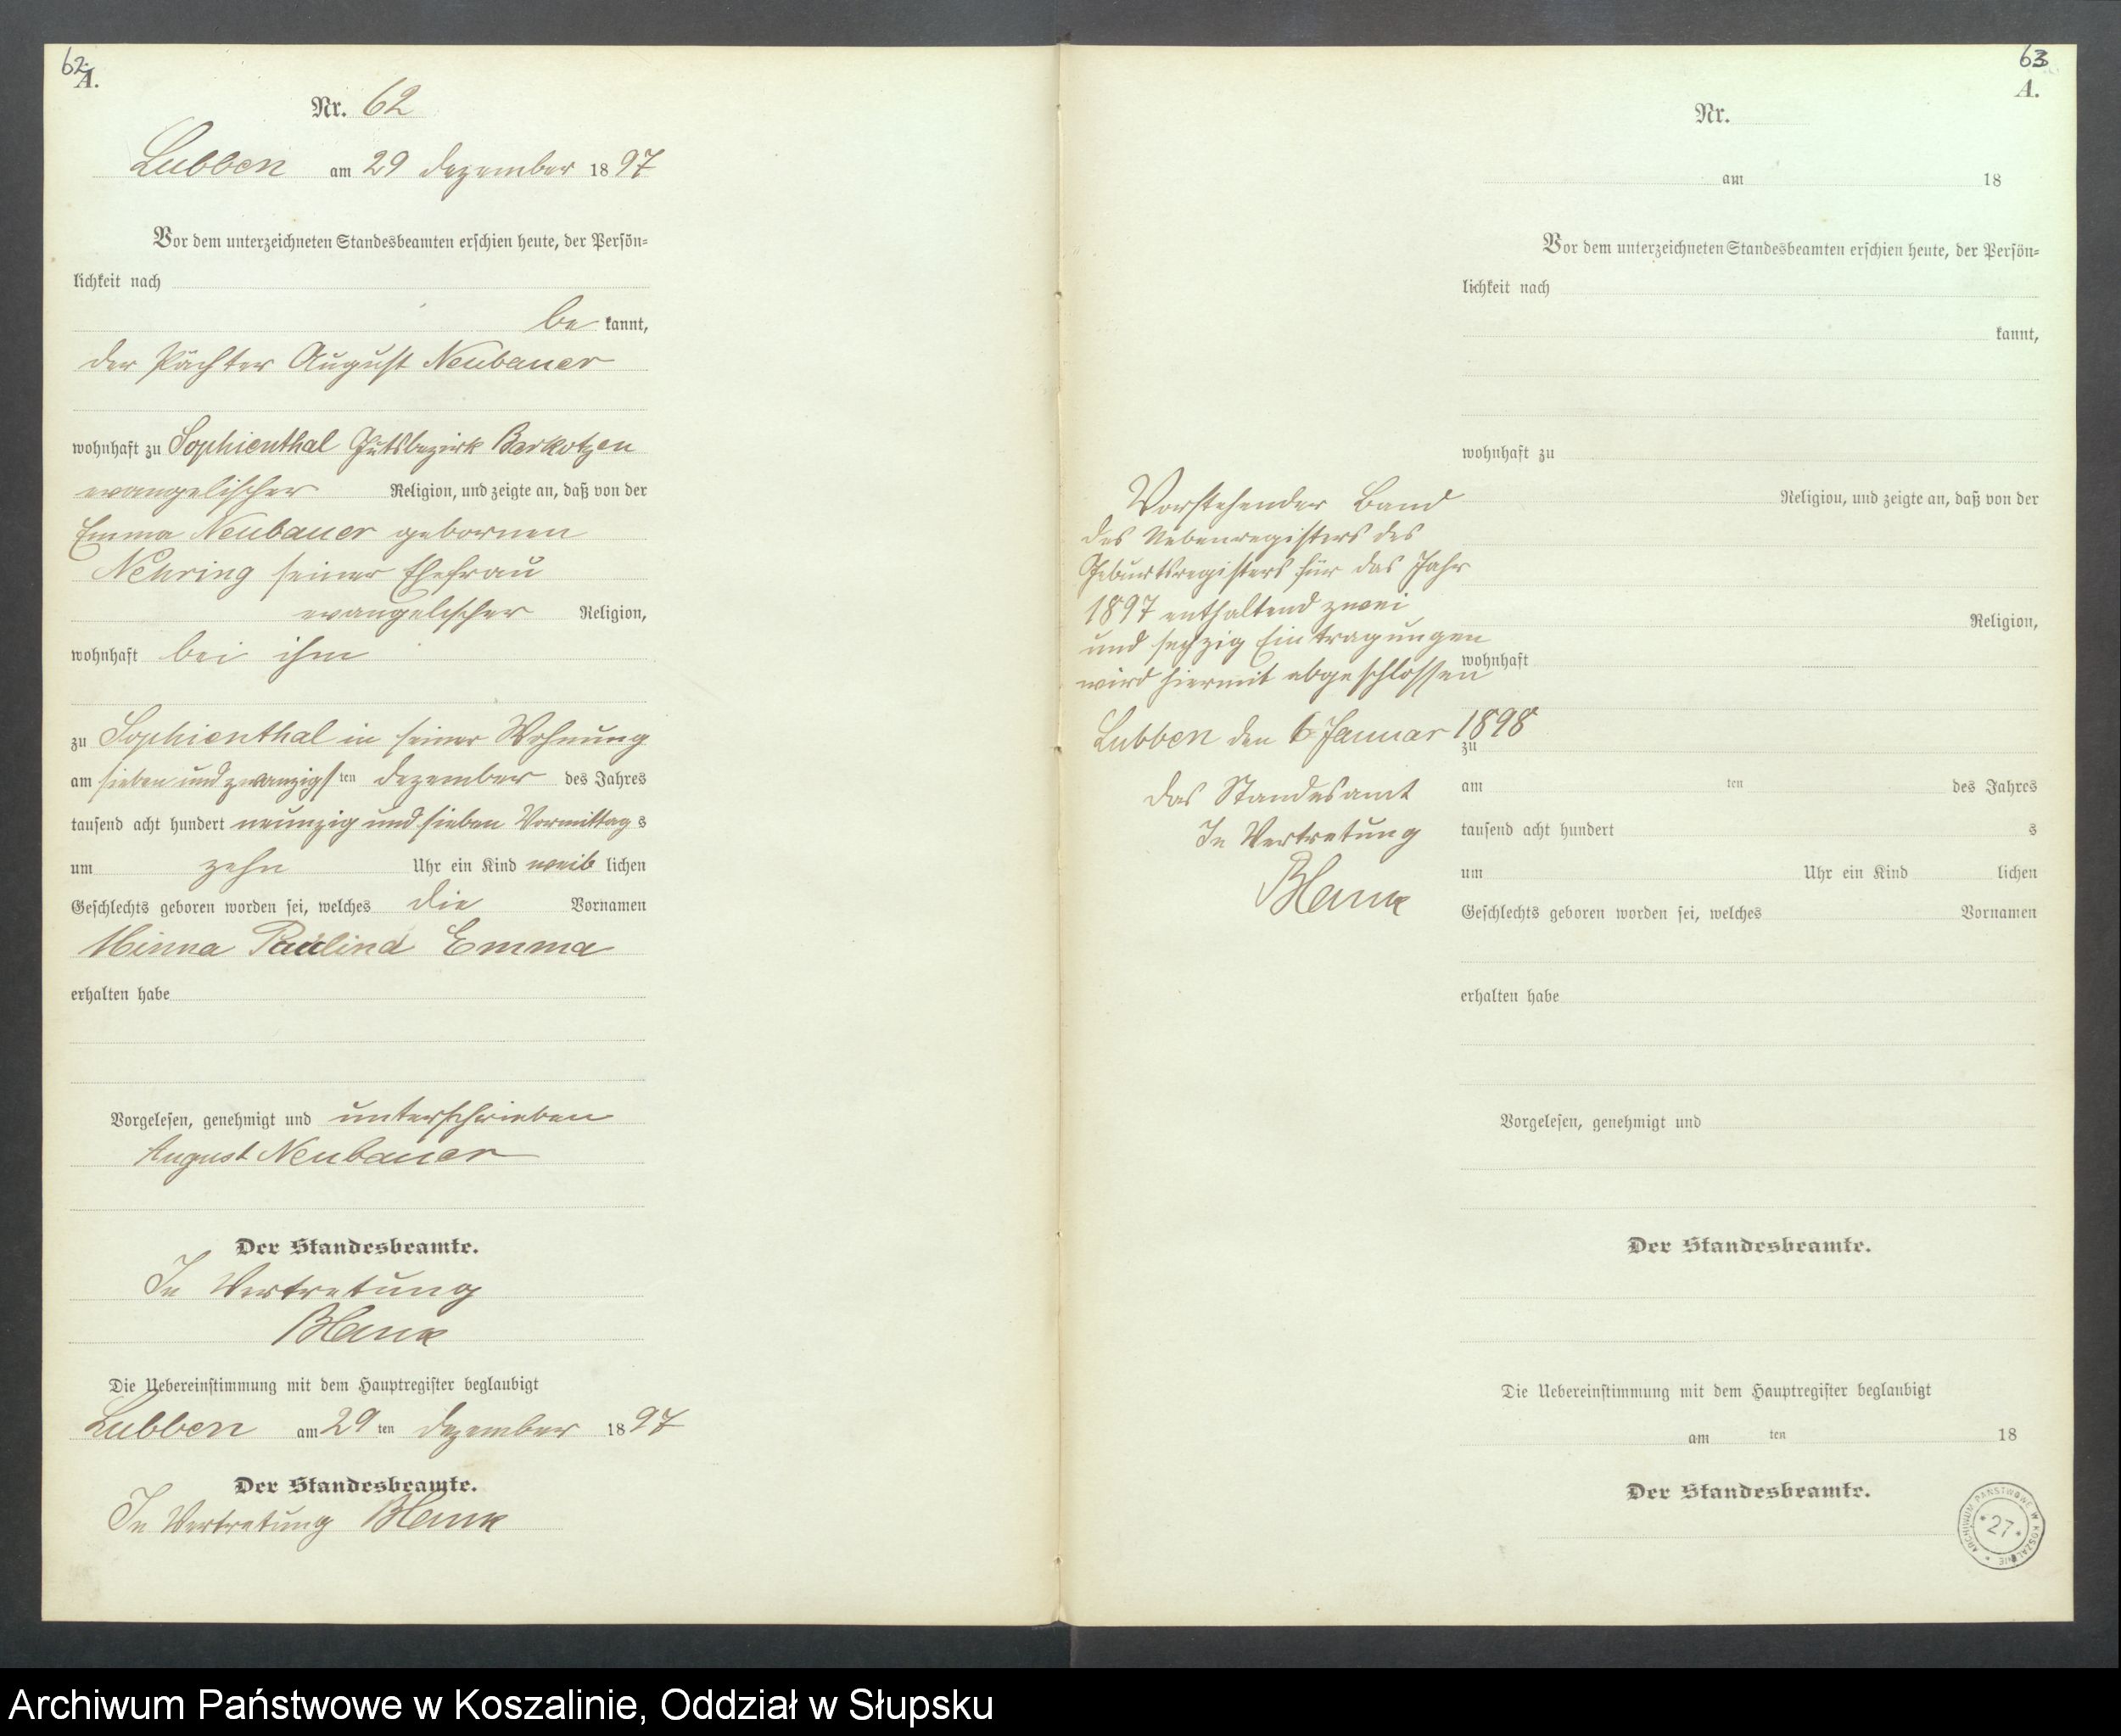 62.
A.
Nr. 62
Lubben am 29 Dezember 1897
Vor dem unterzeichneten Standesbeamten erschien heute, der Persön=
lichkeit nach
be kannt,
der Pächter August Neubauer
wohnhaft zu Sophienthal Gutsbezirk Barkotzen
evangelischer Religion, und zeigte an, daß von der
Emma Neubauer gebornen
Nehring seiner Ehefrau
evangelischer Religion,
wohnhaft bei ihm
zu Sophienthal in seiner Wohnung
am sieben und zwanzigsten Dezember des Jahres
tausend acht hundert neunzig und sieben Vormittags
um zehn Uhr ein Kind weiblichen
Geschlechts geboren worden sei, welches die Vornamen
Minna Paulina Emma
erhalten habe
Vorgelesen, genehmigt und unterschrieben
August Neubauer
Der Standesbeamte.
In Vertretung
Blank
Die Uebereinstimmung mit dem Hauptregister beglaubigt
Lubben am 29 ten Dezember 1897
Der Standesbeamte.
In Vertretung Blank
63
A.
Nr.
am 18
Vor dem unterzeichneten Standesbeamten erschien heute, der Persön=
lichkeit nach
kannt,
wohnhaft zu
Religion, und zeigte an, daß von der
Religion,
wohnhaft
zu
am ten des Jahres
tausend acht hundert s
um Uhr ein Kind lichen
Geschlechts geboren worden sei, welches Vornamen
erhalten habe
Vorgelesen, genehmigt und
Der Standesbeamte.
Die Uebereinstimmung mit dem Hauptregister beglaubigt
am ten 18
Der Standesbeamte.
Vorstehender Band
des Nebenregisters des
Geburtsregisters für das Jahr
1897 enthaltend zwei
und sechzig Eintragungen
wird hiermit abgeschlossen
Lubben den 6 Januar 1898
Das Standesamt
In Vertretung
Blank
ARCHIWUM PAŃSTWOWE W KOSZALINIE
* 27 *
Archiwum Państwowe w Koszalinie, Oddział w Słupsku